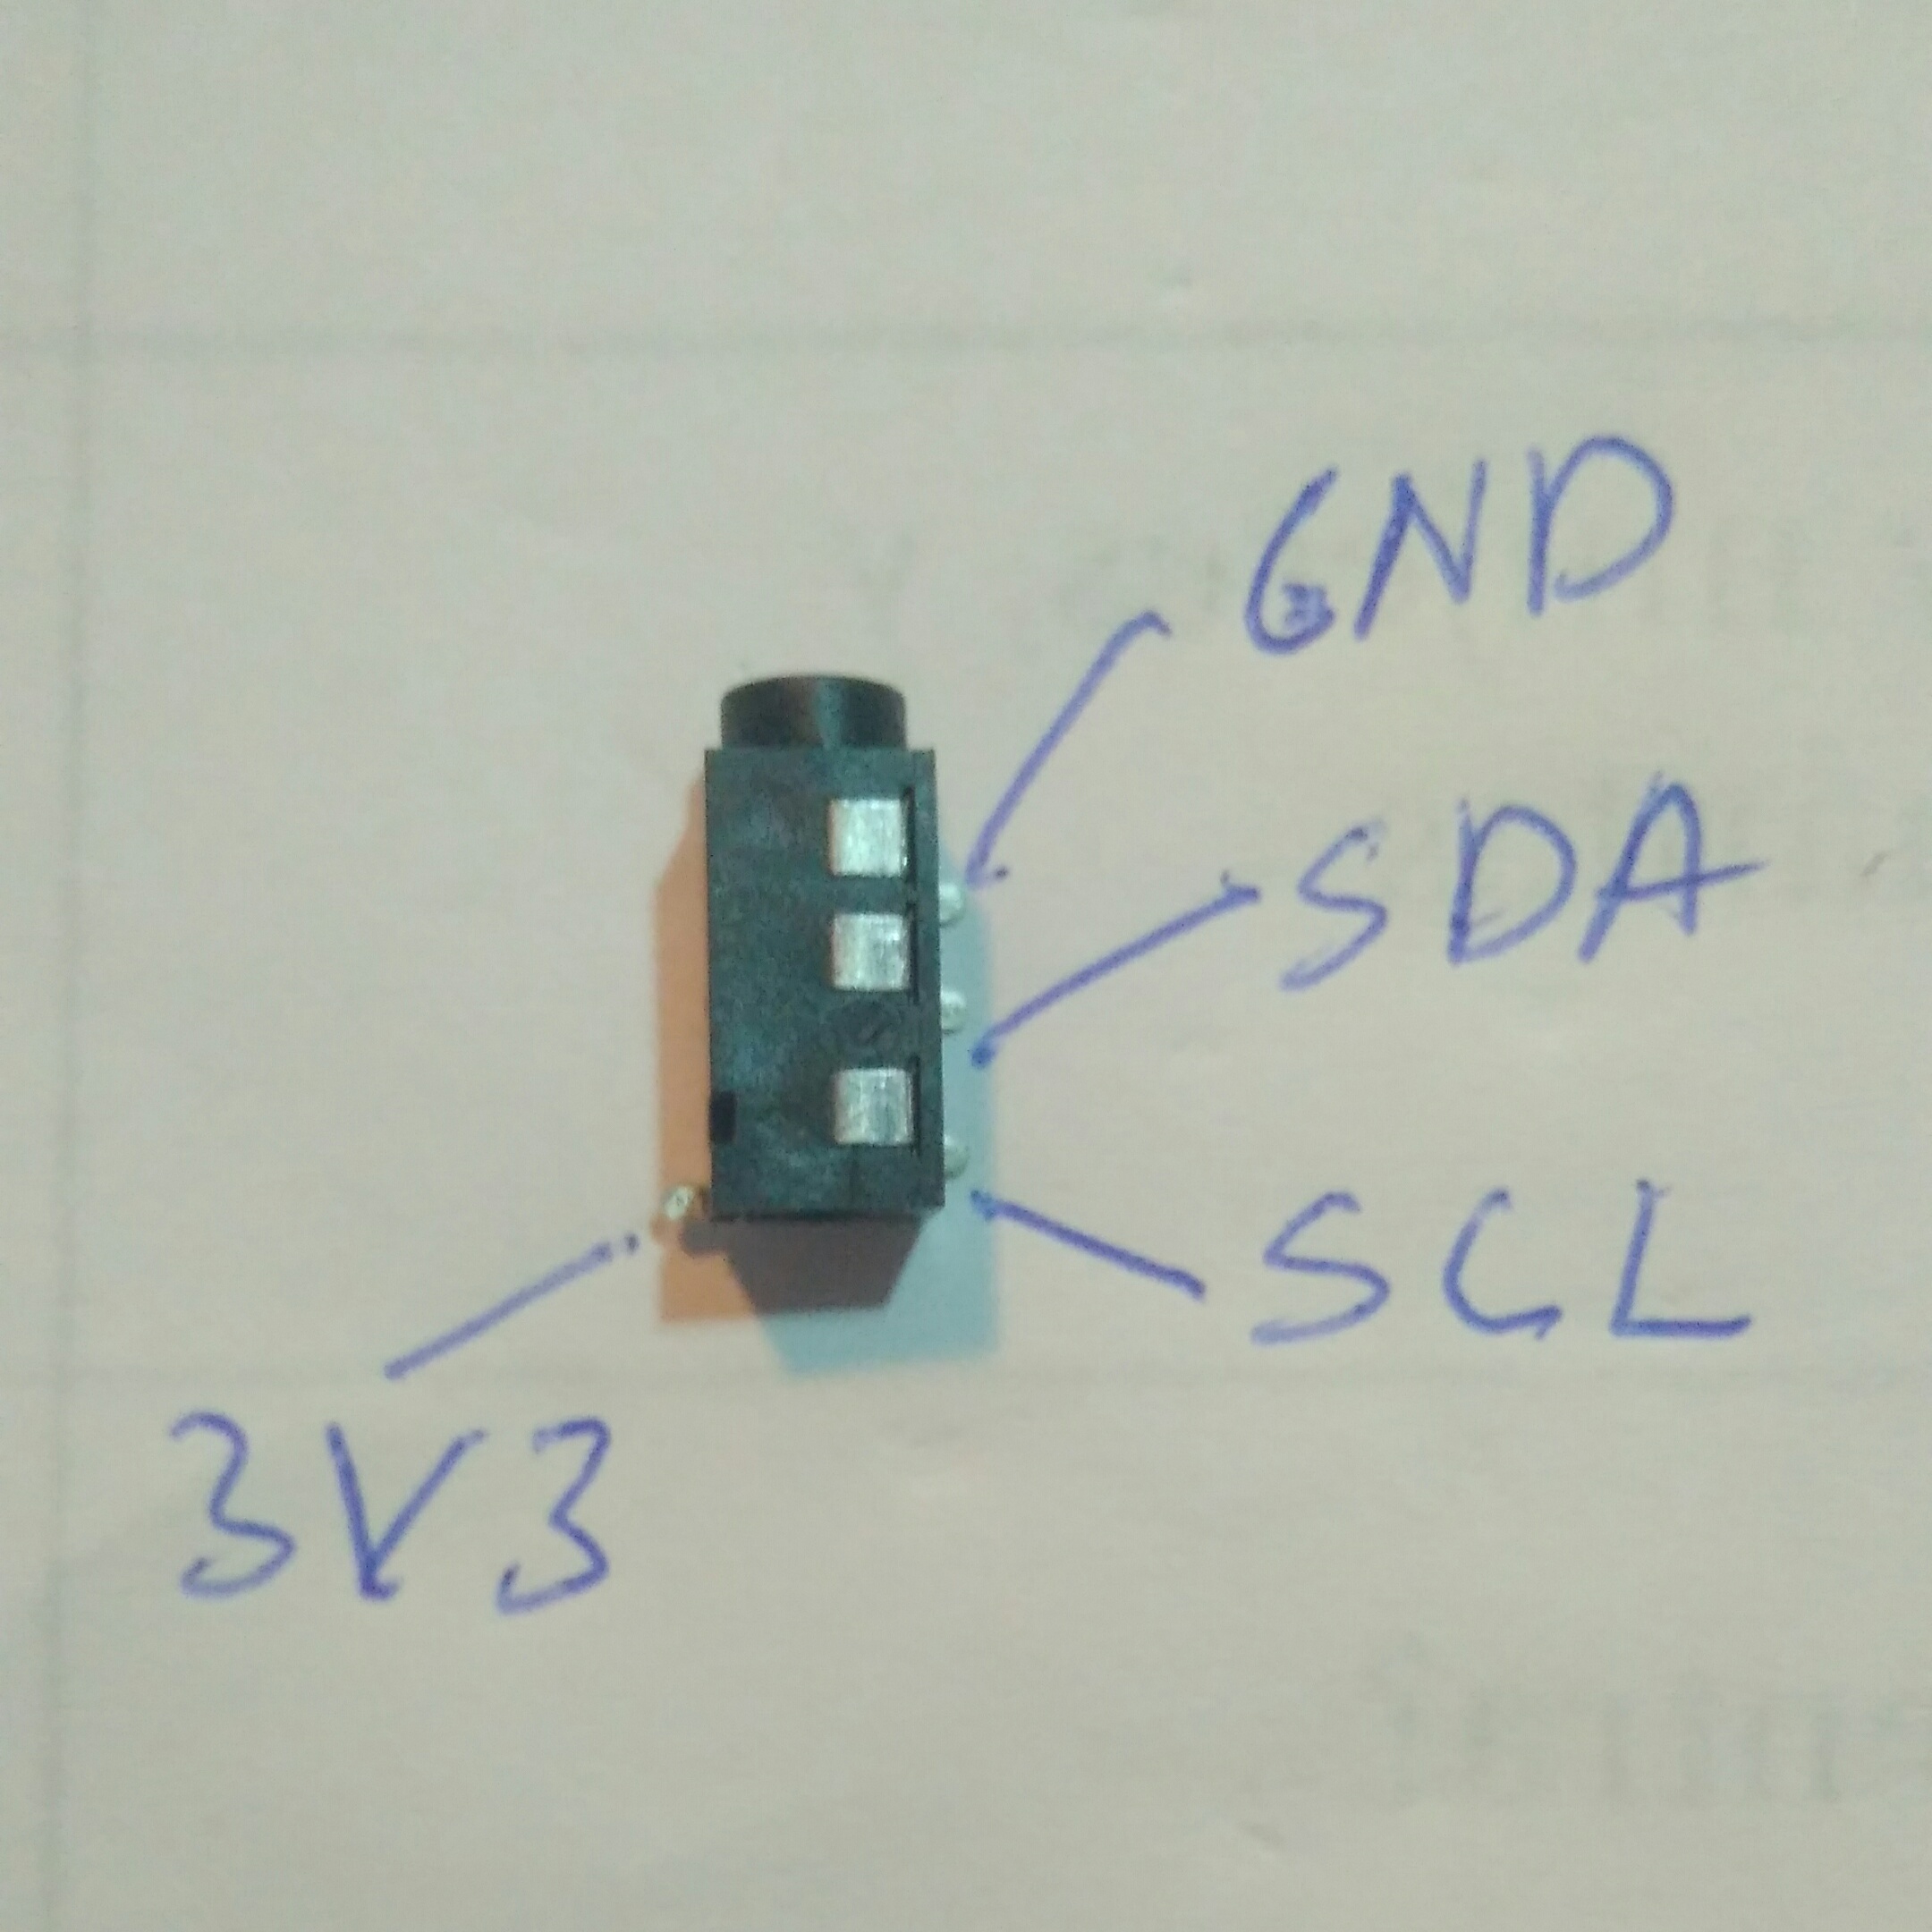 GND
SDA
SCL
3V3